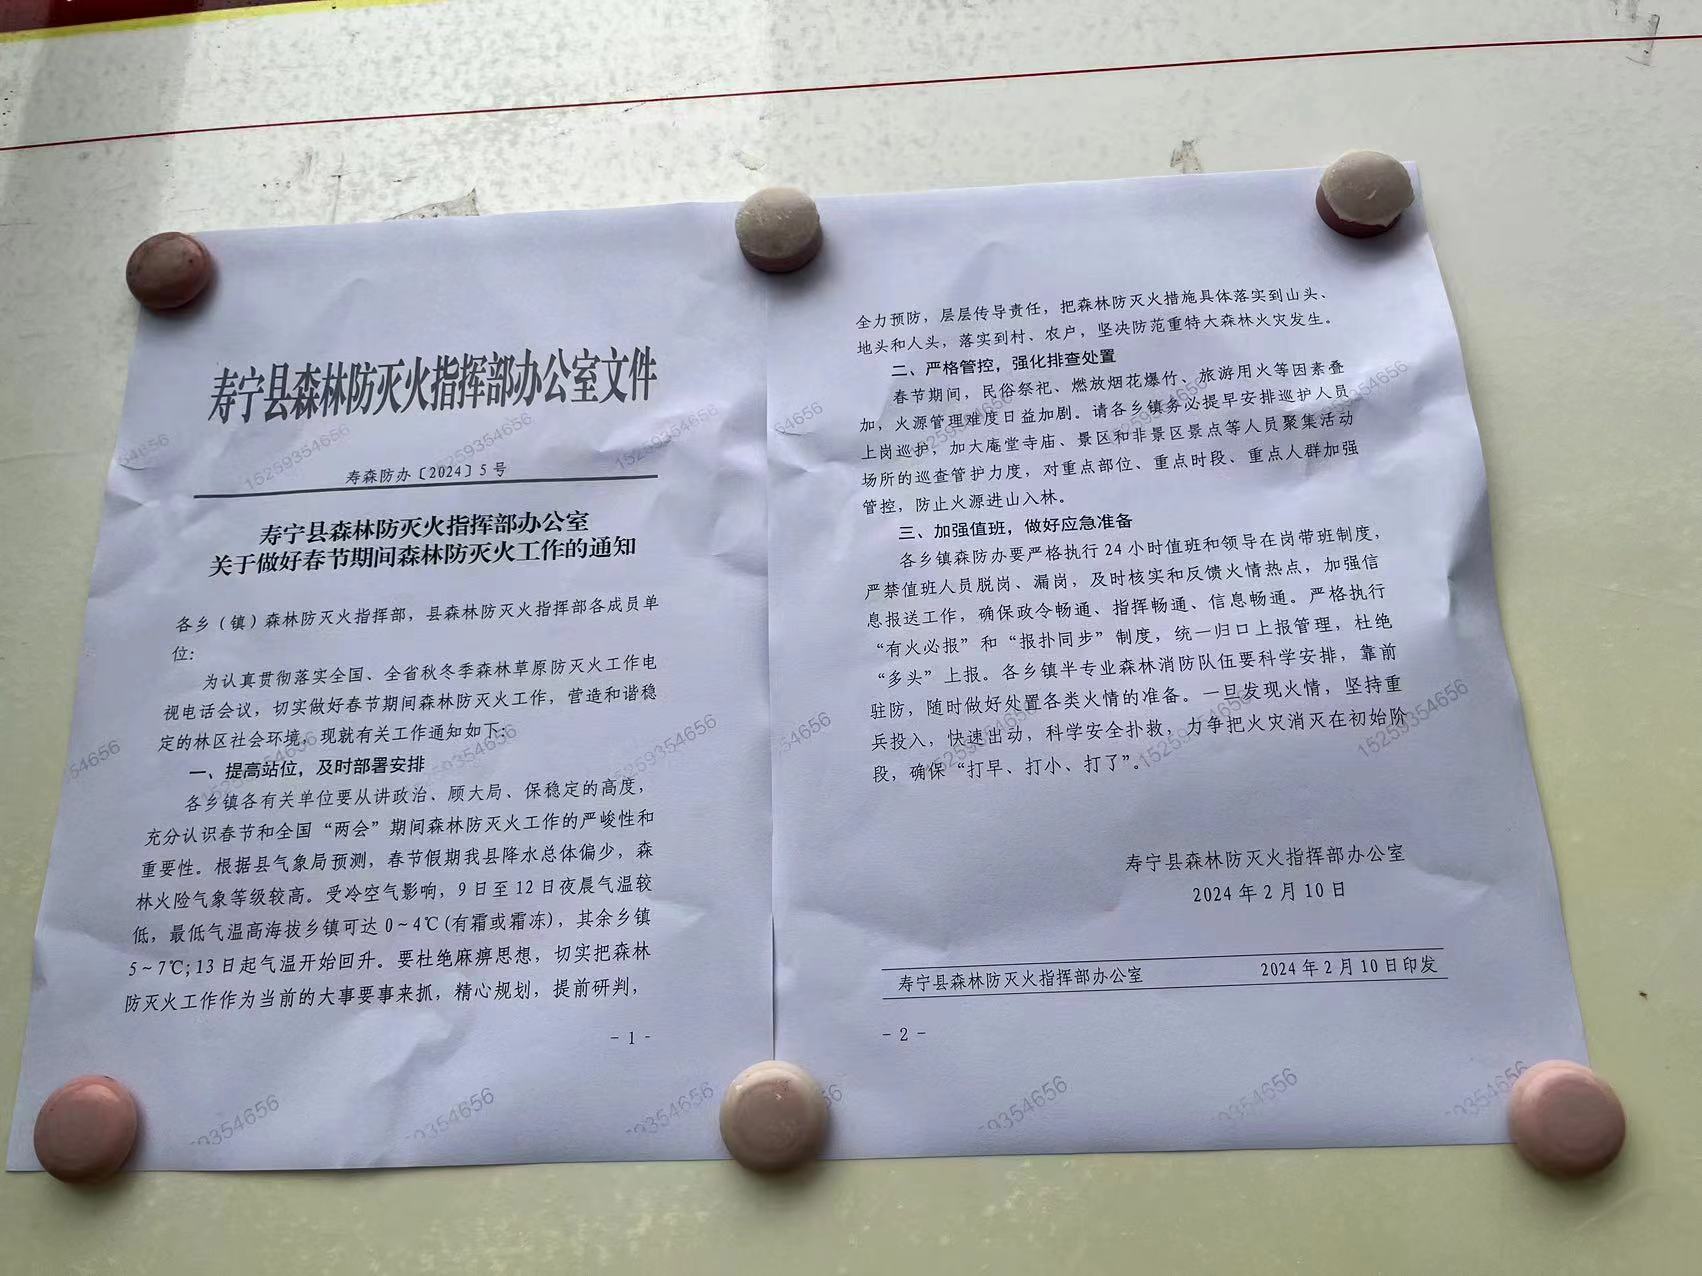 寿宁县森林防灭火指挥部办公室文件
寿森防办〔2024〕5号
寿宁县森林防灭火指挥部办公室
关于做好春节期间森林防灭火工作的通知
各乡（镇）森林防灭火指挥部，县森林防灭火指挥部各成员单
位：
为认真贯彻落实全国、全省秋冬季森林草原防灭火工作电
视电话会议，切实做好春节期间森林防灭火工作，营造和谐稳
定的林区社会环境，现就有关工作通知如下：
一、提高站位，及时部署安排
各乡镇各有关单位要从讲政治、顾大局、保稳定的高度，
充分认识春节和全国“两会”期间森林防灭火工作的严峻性和
重要性。根据县气象局预测，春节假期我县降水总体偏少，森
林火险气象等级较高。受冷空气影响，9日至12日夜晨气温较
低，最低气温高海拔乡镇可达0~4℃(有霜或霜冻)，其余乡镇
5~7℃;13日起气温开始回升。要杜绝麻痹思想，切实把森林
防灭火工作作为当前的大事要事来抓，精心规划，提前研判，
- 1 -
全力预防，层层传导责任，把森林防灭火措施具体落实到山头、
地头和人头，落实到村、农户，坚决防范重特大森林火灾发生。
二、严格管控，强化排查处置
春节期间，民俗祭祀、燃放烟花爆竹、旅游用火等因素叠
加，火源管理难度日益加剧。请各乡镇务必提早安排巡护人员
上岗巡护，加大庵堂寺庙、景区和非景区景点等人员聚集活动
场所的巡查管护力度，对重点部位、重点时段、重点人群加强
管控，防止火源进山入林。
三、加强值班，做好应急准备
各乡镇森防办要严格执行24小时值班和领导在岗带班制度，
严禁值班人员脱岗、漏岗，及时核实和反馈火情热点，加强信
息报送工作，确保政令畅通、指挥畅通、信息畅通。严格执行
“有火必报”和“报扑同步”制度，统一归口上报管理，杜绝
“多头”上报。各乡镇半专业森林消防队伍要科学安排，靠前
驻防，随时做好处置各类火情的准备。一旦发现火情，坚持重
兵投入，快速出动，科学安全扑救，力争把火灾消灭在初始阶
段，确保“打早、打小、打了”。
寿宁县森林防灭火指挥部办公室
2024年2月10日
寿宁县森林防灭火指挥部办公室 2024年2月10日印发
- 2 -
15259354656